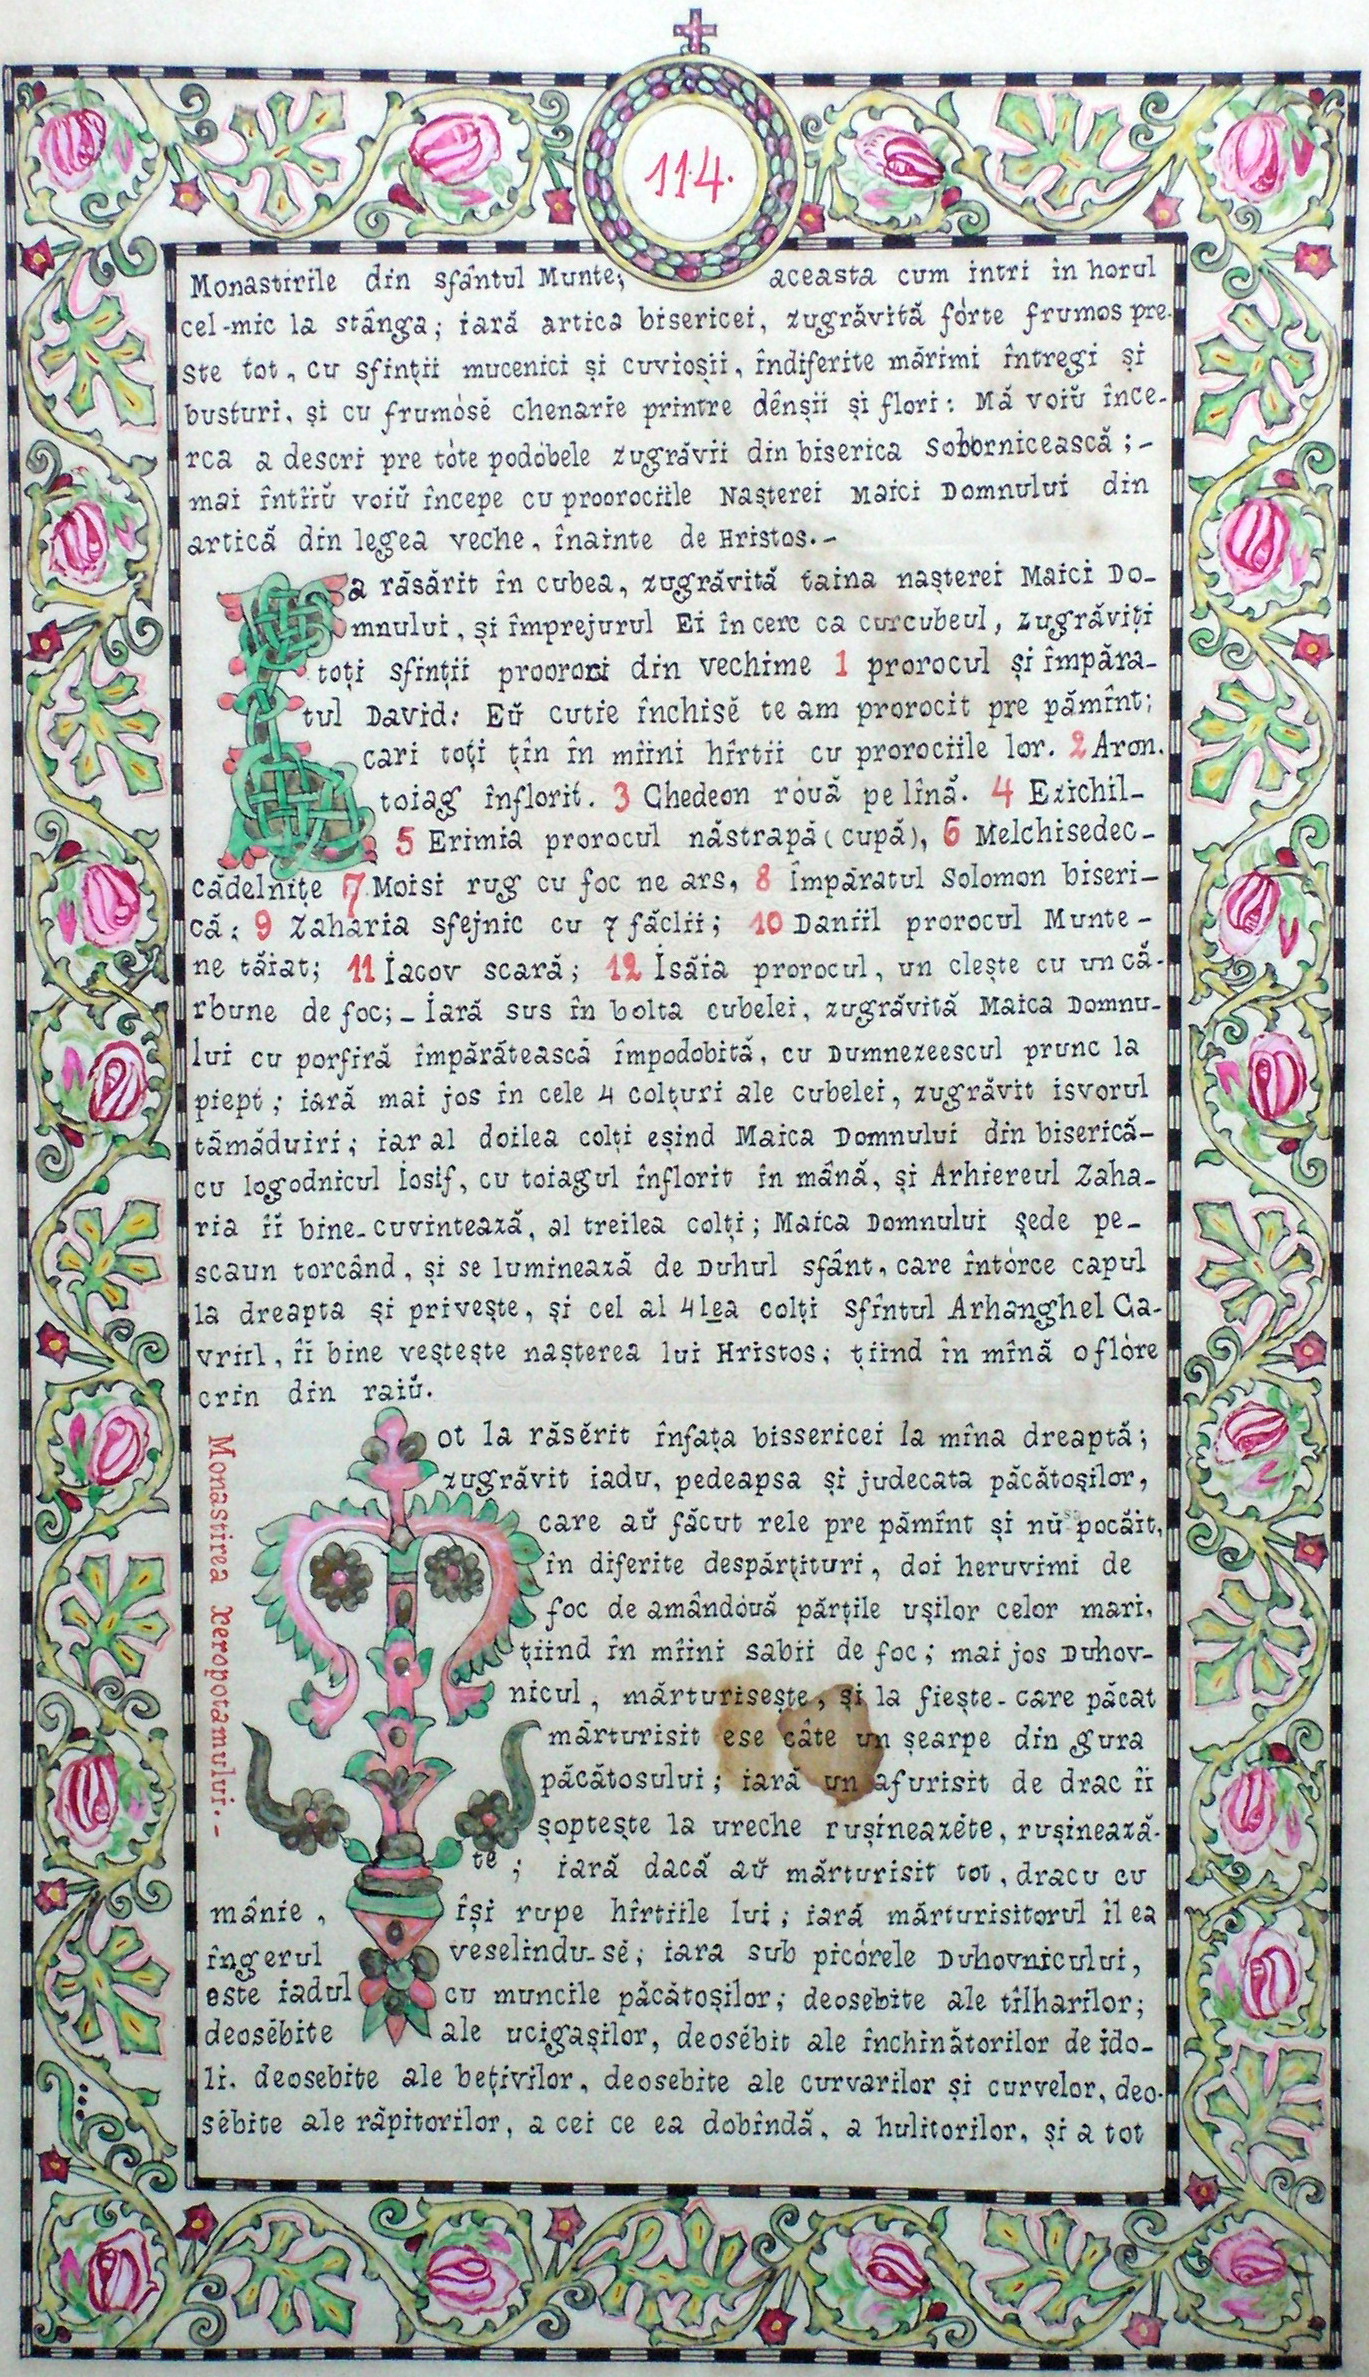 114.
Monastirile din sfântul Munte; aceasta cum intri in horul
cel-mic la stânga; iară artica bisericei, zugrăvită fórte frumos pre-
ste tot, cu sfinții mucenici și cuvioșii, îndiferite mărimi întregi și
busturi, și cu frumósĕ chenarie printre dênșii și flori: Mă voiŭ înce-
rca a descri pre tóte podóbele zugrăvii din biserica Sobornicească;-
mai întîiŭ voiŭ începe cu proorociile Nașterei Maici Domnului din
artică din legea veche, înainte de Hristos.-
La răsărit în cubea, zugrăvită taina nașterei Maici Do-
mnului, și împrejurul Ei în cerc ca curcubeul, zugrăviți
toți sfinții prooroci din vechime 1 prorocul și împăra-
tul David: Eŭ cutie închisĕ te am prorocit pre pămînt;
cari toți țin în mîini hîrtii cu prorociile lor. 2 Aron.
toiag înflorit. 3 Ghedeon róuă pe lînă. 4 Ezichil-
5 Erimia prorocul năstrapă (cupă), 6 Melchisedec-
cădelnițe 7 Moisi rug cu foc ne ars, 8 împăratul Solomon biseri-
că; 9 Zaharia sfejnic cu 7 făclii; 10 Daniil prorocul Munte-
ne tăiat; 11 Iacov scară; 12 Isăia prorocul, un clește cu un că-
rbune de foc;- Iară sus în bolta cubelei, zugrăvită Maica Domnu-
lui cu porfiră împărătească împodobită, cu Dumnezeescul prunc la
piept; iară mai jos în cele 4 colțuri ale cubelei, zugrăvit isvorul
tămăduiri; iar al doilea colți eșind Maica Domnului din biserică-
cu logodnicul Iosif, cu toiagul înflorit în mână, și Arhiereul Zaha-
ria îi bine-cuvintează, al treilea colți; Maica Domnului șede pe-
scaun torcând, și se luminează de Duhul sfânt, care întórce capul
la dreapta și privește, și cel al 4lea colți sfîntul Arhanghel Ga-
vriil, îi bine vestește nașterea lui Hristos; țiind în mînă o flóre
crin din raiŭ.
Tot la răsĕrit înfața bissericei la mîna dreaptă;
zugrăvit iadu, pedeapsa și judecata păcătoșilor,
care aŭ făcut rele pre pămînt și nŭ pocăit,
în diferite despărțituri, doi heruvimi de
foc de amândóuă părțile ușilor celor mari,
țiind în mîini sabii de foc; mai jos Duhov-
nicul, mărturisește, și la fiește-care păcat
mărturisit ese câte un șearpe din gura
păcătosului; iară un afurisit de drac îi
șoptește la ureche rușineazéte, rușinează-
te; iară dacă aŭ mărturisit tot, dracu cu
mânie, își rupe hîrtiile lui; iară mărturisitorul îl ea
îngerul veselindu-sĕ; iara sub picórele Duhovnicului,
este iadul cu muncile păcătoșilor; deosebite ale tîlharilor;
deosébite ale ucigașilor, deosébit ale închinătorilor de ido-
li. deosebite ale bețivilor, deosebite ale curvarilor și curvelor, deo-
sébite ale răpitorilor, a cei ce ea dobîndă, a hulitorilor, și a tot
Monastirea Xeropotamului.-